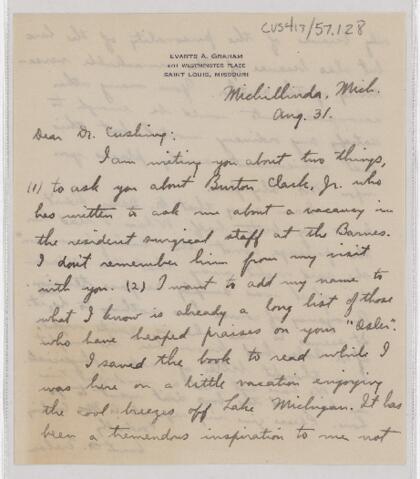 CUS417/57.128
EVARTS A. GRAHAM
WESTMINSTER PLACE
SAINT LOUIS, MISSOURI
Michillinda, Mich.
Aug. 31.
Dear Dr. Cushing:
I am writing you about two things,
(1) to ask you about Burton Clark, Jr. who
has written to ask me about a vacancy in
the resident surgical staff at the Barnes.
I don't remember him from my visit
with you. (2) I want to add my name to
what I know is already a long list of those
who have heaped praises on your "Osler".
I saved the book to read while I
was here on a little vacation enjoying
the cool breezes off Lake Michigan. It has
been a tremendous inspiration to me not